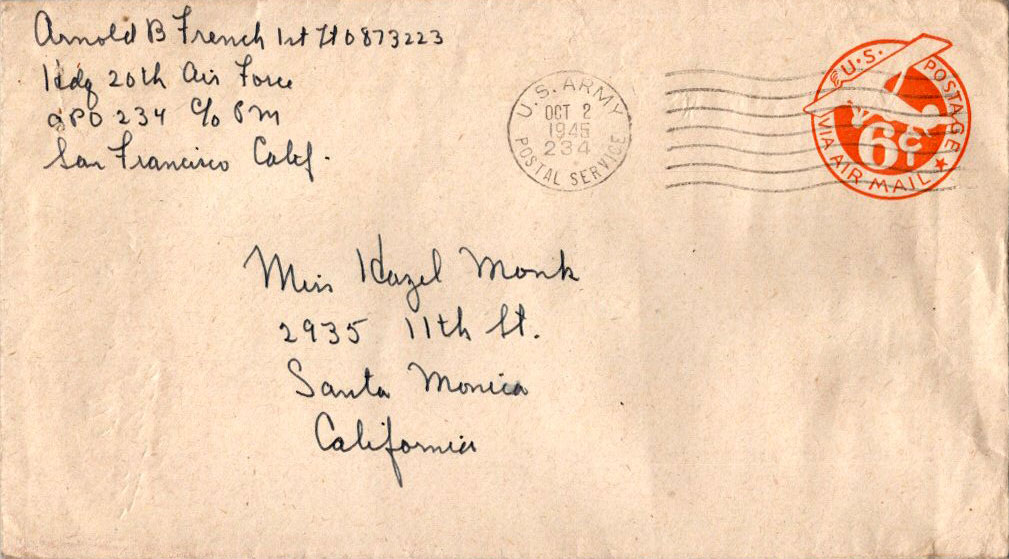 Arnold B French 1st Lt 0873223
Hdq 20th Air Force
APO 234 c/o PM
San Francisco Calif.
U.S. ARMY
OCT 2
1945
234
POSTAL SERVICE
U.S. POSTAGE
6¢
VIA AIR MAIL
Miss Hazel Monk
2935 11th St.
Santa Monica
California